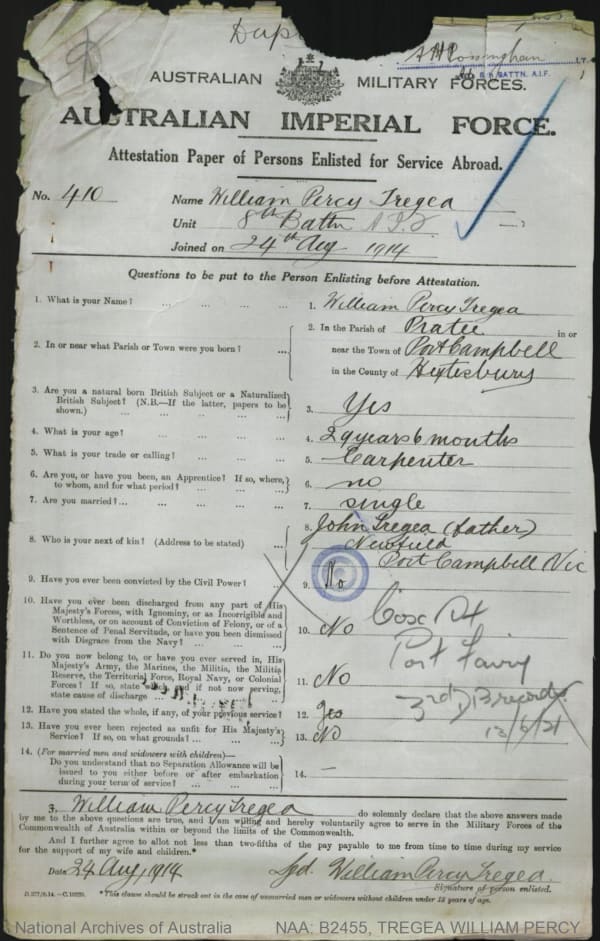 Dup
8th BATTN. A.I.F.
AUSTRALIAN MILITARY FORCES.
AUSTRALIAN IMPERIAL FORCE.
Attestation Paper of Persons Enlisted for Service Abroad.
No. 410 Name William Percy Tregea
Unit 8th Battn A.I.F
Joined on 24th Aug 1914
Questions to be put to the Person Enlisting before Attestation.
1. What is your Name? ... ... ... ... 1. William Percy Tregea
2. In or near what Parish or Town were you born? ... ... 2. In the Parish of in or
near the Town of Port Campbell
in the County of Heytesbury
3. Are you a natural born British Subject or a Naturalized
British Subject? (N.B.—If the latter, papers to be
shown.) ... ... ... ... ... 3. Yes
4. What is your age? ... ... ... ... 4. 29 years 6 months
5. What is your trade or calling? ... ... ... 5. Carpenter
6. Are you, or have you been, an Apprentice? If so, where,
to whom, and for what period? ... ... ... 6. no
7. Are you married?... ... ... ... ... 7. single
8. Who is your next of kin? (Address to be stated) ... ... 8. John Tregea (father)
Newfield
Port Campbell Vic
9. Have you ever been convicted by the Civil Power? ... 9. No
10. Have you ever been discharged from any part of His
Majesty's Forces, with Ignominy, or as Incorrigible and
Worthless, or on account of Conviction of Felony, or of a
Sentence of Penal Servitude, or have you been dismissed
with Disgrace from the Navy? ... ... ... 10. No
Cox St
Port Fairy
11. Do you now belong to, or have you ever served in, His
Majesty's Army, the Marines, the Militia, the Militia
Reserve, the Territorial Force, Royal Navy, or Colonial
Forces? If so, state and if not now serving,
state cause of discharge ... 11. No
12. Have you stated the whole, if any, of your previous service? 12. Yes
13. Have you ever been rejected as unfit for His Majesty's
Service? If so, on what grounds? ... ... ... 13. No
14. (For married men and widowers with children)—
Do you understand that no Separation Allowance will be
issued to you either before or after embarkation
during your term of service? ... ... ... 14. —
William Percy Tregea do solemnly declare that the above answers made
by me to the above questions are true, and I am willing and hereby voluntarily agree to serve in the Military Forces of the
Commonwealth of Australia within or beyond the limits of the Commonwealth.
And I further agree to allot not less than two-fifths of the pay payable to me from time to time during my service
for the support of my wife and children.*
Date 24 Aug, 1914 Sgd. William Percy Tregea
Signature of person enlisted.
*This clause should be struck out in the case of unmarried men or widowers without children under 18 years of age.
National Archives of Australia NAA: B2455, TREGEA WILLIAM PERCY